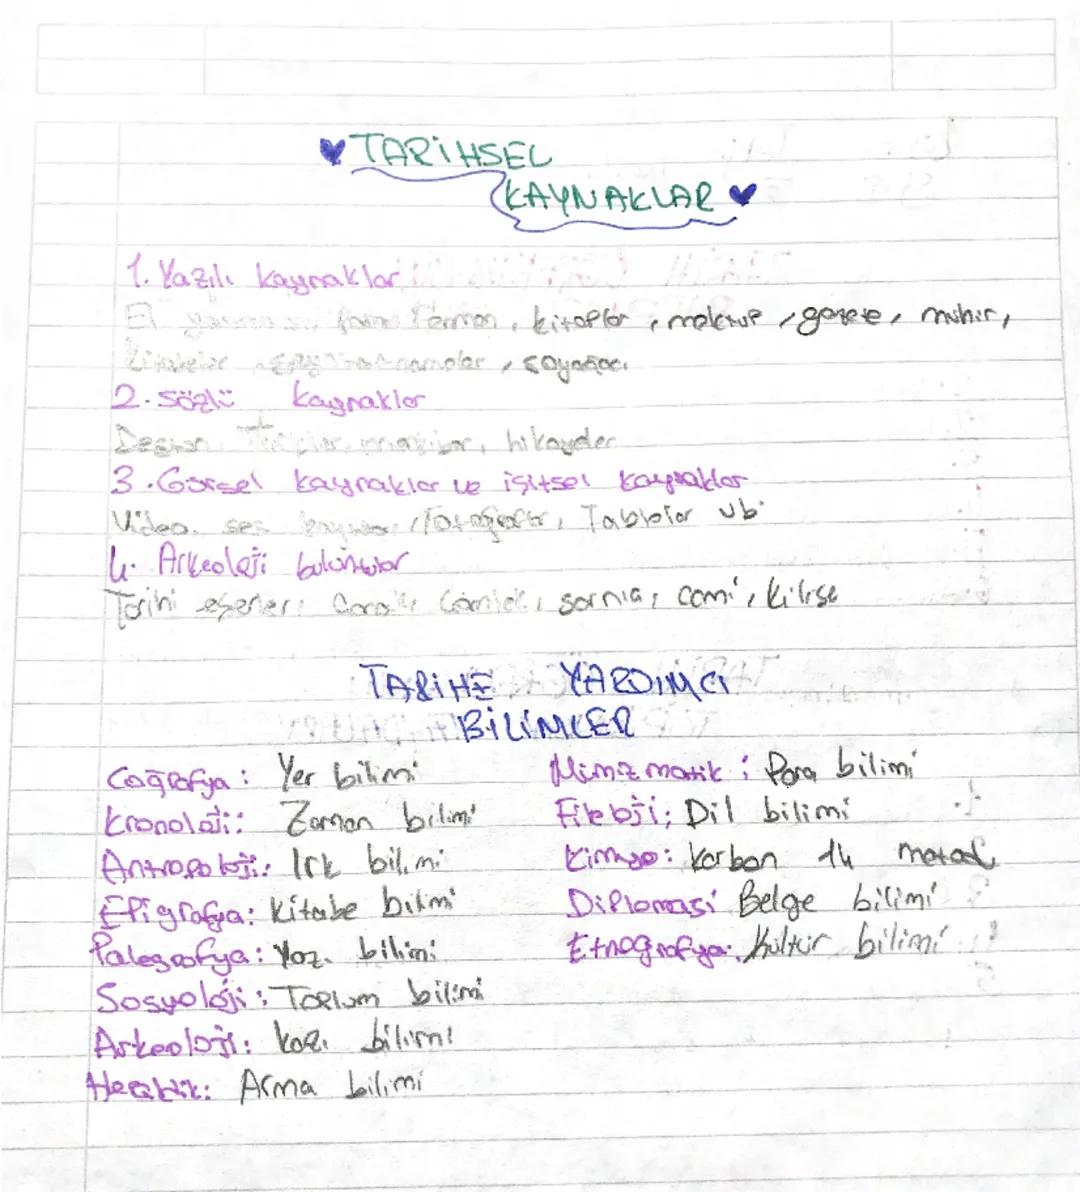 TARİHSEL
KAYNAKLAR
1. Yazılı kaynaklar
El Ferman, kitaplar, mektup, gazete, mühür,
kitabeler soyağacı
2. sözlü kaynaklar
Destan, hikayeler
3. Görsel kaynaklar ve işitsel kaynaklar
Video, ses fotoğraflar, Tablolar vb.
4. Arkeoloji buluntular
Tarihi eserler, sarnıç, cami, kilise
TARİHE YARDIMCI
BİLİMLER
Coğrafya: Yer bilimi
Kronoloji: Zaman bilimi
Antropoloji: Irk bilimi
Epigrafya: Kitabe bilimi
Paleografya: Yazı bilimi
Sosyoloji: Toplum bilimi
Arkeoloji: Kazı bilimi
Heraldik: Arma bilimi
Nimizmatik: Para bilimi
Filoloji: Dil bilimi
Kimya: Karbon 14 metod
Diplomasi Belge bilimi
Etnografya: Kültür bilimi